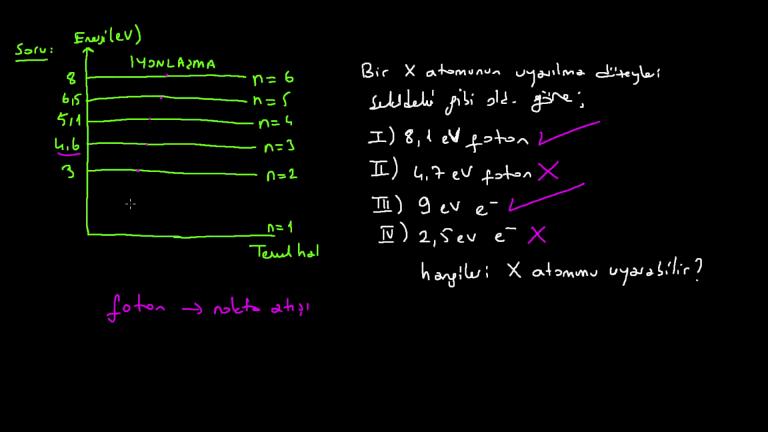 Soru:
Enerji(eV)
İYONLAŞMA
8 n=6
6,5 n=5
5,1 n=4
4,6 n=3
3 n=2
n=1
Temel hal
foton → nokta atışı
Bir X atomunun uyarılma düzeyleri
şekildeki gibi old. göre;
I) 8,1 eV foton ✓
II) 4,7 eV foton X
III) 9 eV e⁻ ✓
IV) 2,5 eV e⁻ X
hangileri X atomunu uyarabilir?